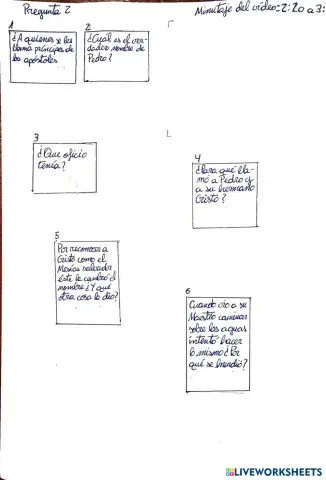 Pregunta 2
Minutaje del video=2:20 a 3:
1
2
¿A quienes se les
llama príncipes de
los apóstoles
¿Cuál es el ver-
dadero nombre de
Pedro?
3
¿Que oficio
tenía?
4
¿Para qué lla-
mó a Pedro y
a su hermano
Cristo?
5
Por reconocer a
Cristo como el
Mesías salvador
éste le cambió el
nombre ¿Y qué
otra cosa le dio?
6
Cuando vio a su
Maestro caminar
sobre las aguas
intentó hacer
lo mismo ¿Por
qué se hundió?
LIVEWORKSHEETS